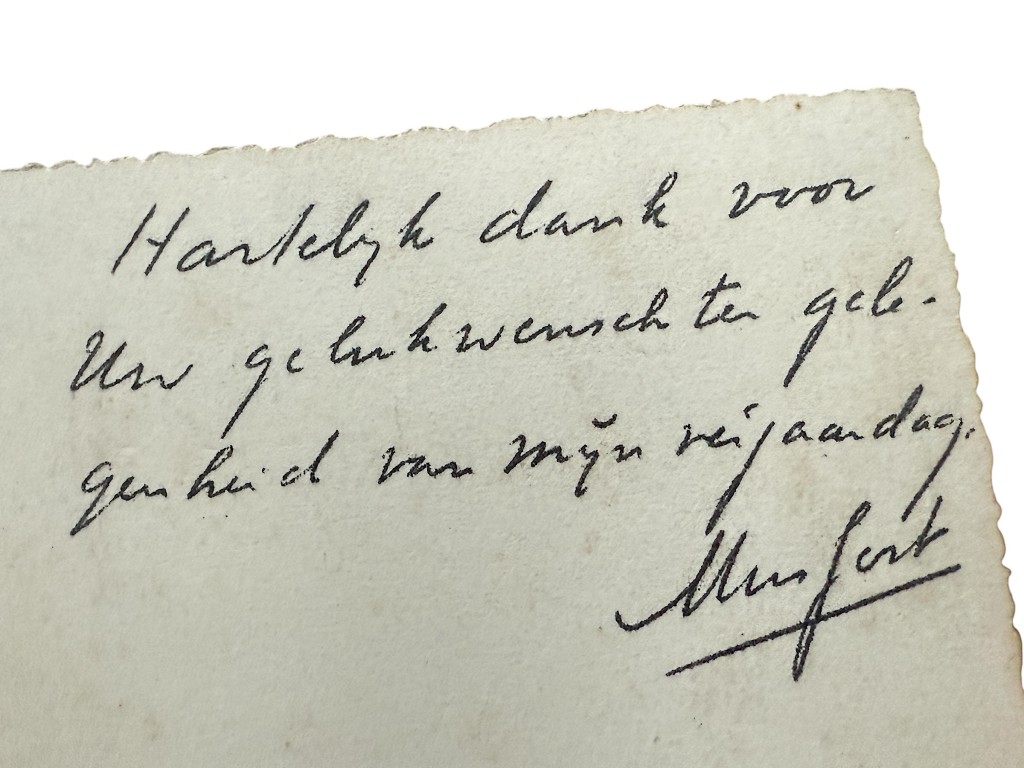 Hartelijk dank voor
Uw gelukwensch ter gele-
genheid van mijn verjaardag.